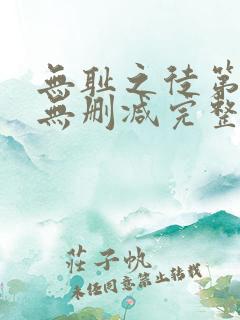 無耻之徒第
無删减完整
莊子帆
未经同意禁止转载